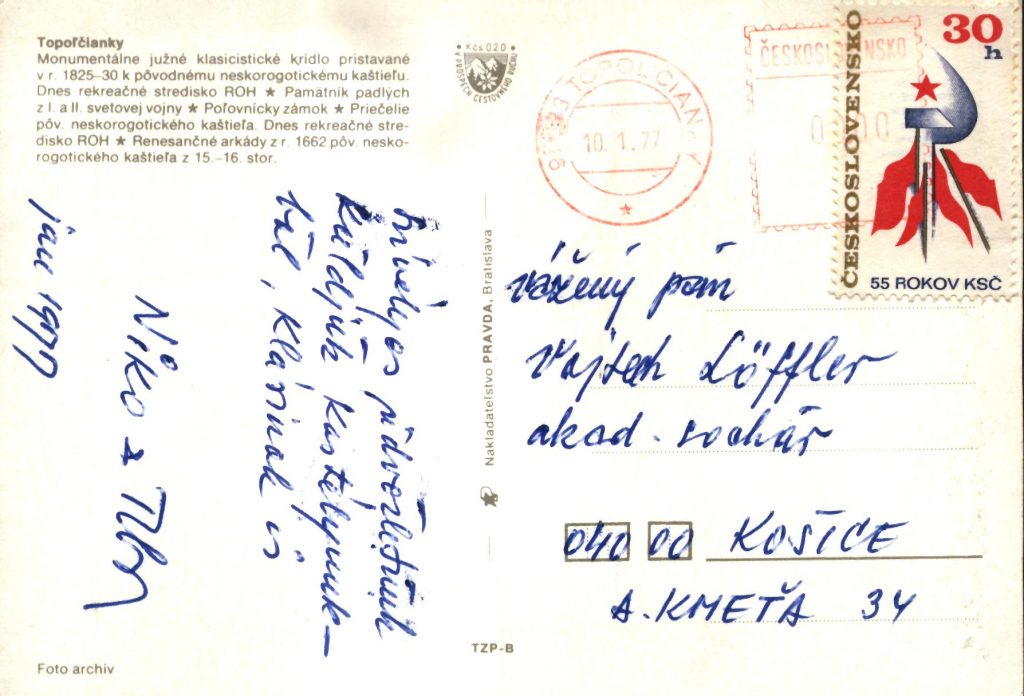 Topoľčianky
Monumentálne južné klasicistické krídlo pristavané
v r. 1825–30 k pôvodnému neskorogotickému kaštieľu.
Dnes rekreačné stredisko ROH ★ Pamätník padlých
z I. a II. svetovej vojny ★ Poľovnícky zámok ★ Priečelie
pôv. neskorogotického kaštieľa. Dnes rekreačné stre-
disko ROH ★ Renesančné arkády z r. 1662 pôv. nesko-
rogotického kaštieľa z 15.–16. stor.
Kčs 0·20
V PROSPECH CESTOVNÉHO RUCHU
TOPOĽČIANKY
10.1.77
ČESKOSLOVENSKO
ČESKOSLOVENSKO
30
h
55 ROKOV KSČ
Szívélyes üdvözletünk
küldjük kastélyunk-
ból, Klárinak is
Niko a
jan 1977
Nakladateľstvo PRAVDA, Bratislava
vážený pán
Vojtech Löffler
akad. sochár
040 00 KOŠICE
A. KMEŤA 34
TZP-B
Foto archív